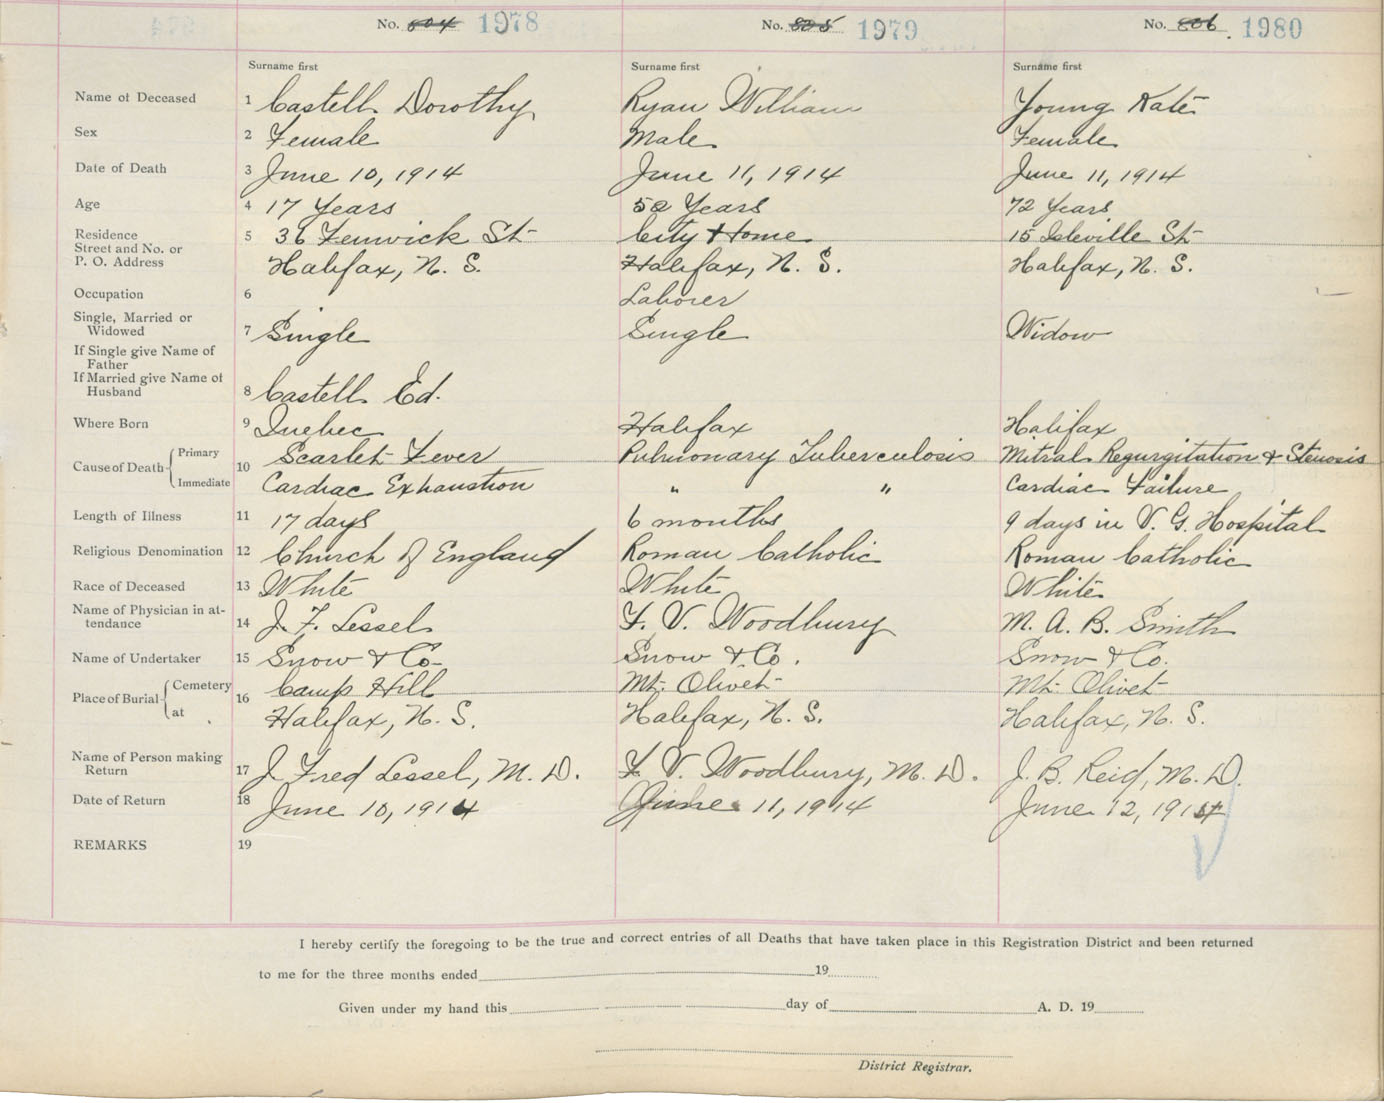 No. 804 1978 No. 805 1979 No. 806 1980
Surname first Surname first Surname first
Name of Deceased 1 Castell Dorothy Ryan William Young Kate
Sex 2 Female Male Female
Date of Death 3 June 10, 1914 June 11, 1914 June 11, 1914
Age 4 17 Years 52 Years 72 Years
Residence
Street and No. or 5 36 Fenwick St City Home 15 Isleville St
P. O. Address Halifax, N. S. Halifax, N. S. Halifax, N. S.
Occupation 6 Laborer
Single, Married or
Widowed 7 Single Single Widow
If Single give Name of
Father
If Married give Name of
Husband 8 Castell Ed.
Where Born 9 Quebec Halifax Halifax
Cause of Death Primary 10 Scarlet Fever Pulmonary Tuberculosis Mitral Regurgitation & Stenosis
Immediate Cardiac Exhaustion " " Cardiac Failure
Length of Illness 11 17 days 6 months 9 days in V. G. Hospital
Religious Denomination 12 Church of England Roman Catholic Roman Catholic
Race of Deceased 13 White White White
Name of Physician in at-
tendance 14 J. F. Lessel F. V. Woodbury M. A. B. Smith
Name of Undertaker 15 Snow & Co Snow & Co. Snow & Co.
Place of Burial Cemetery 16 Camp Hill Mt. Olivet Mt. Olivet
at Halifax, N. S. Halifax, N. S. Halifax, N. S.
Name of Person making
Return 17 J. Fred Lessel, M. D. F. V. Woodbury, M. D. J. B. Reid, M. D.
Date of Return 18 June 10, 1914 June 11, 1914 June 12, 1914
REMARKS 19
I hereby certify the foregoing to be the true and correct entries of all Deaths that have taken place in this Registration District and been returned
to me for the three months ended 19
Given under my hand this day of A. D. 19
District Registrar.